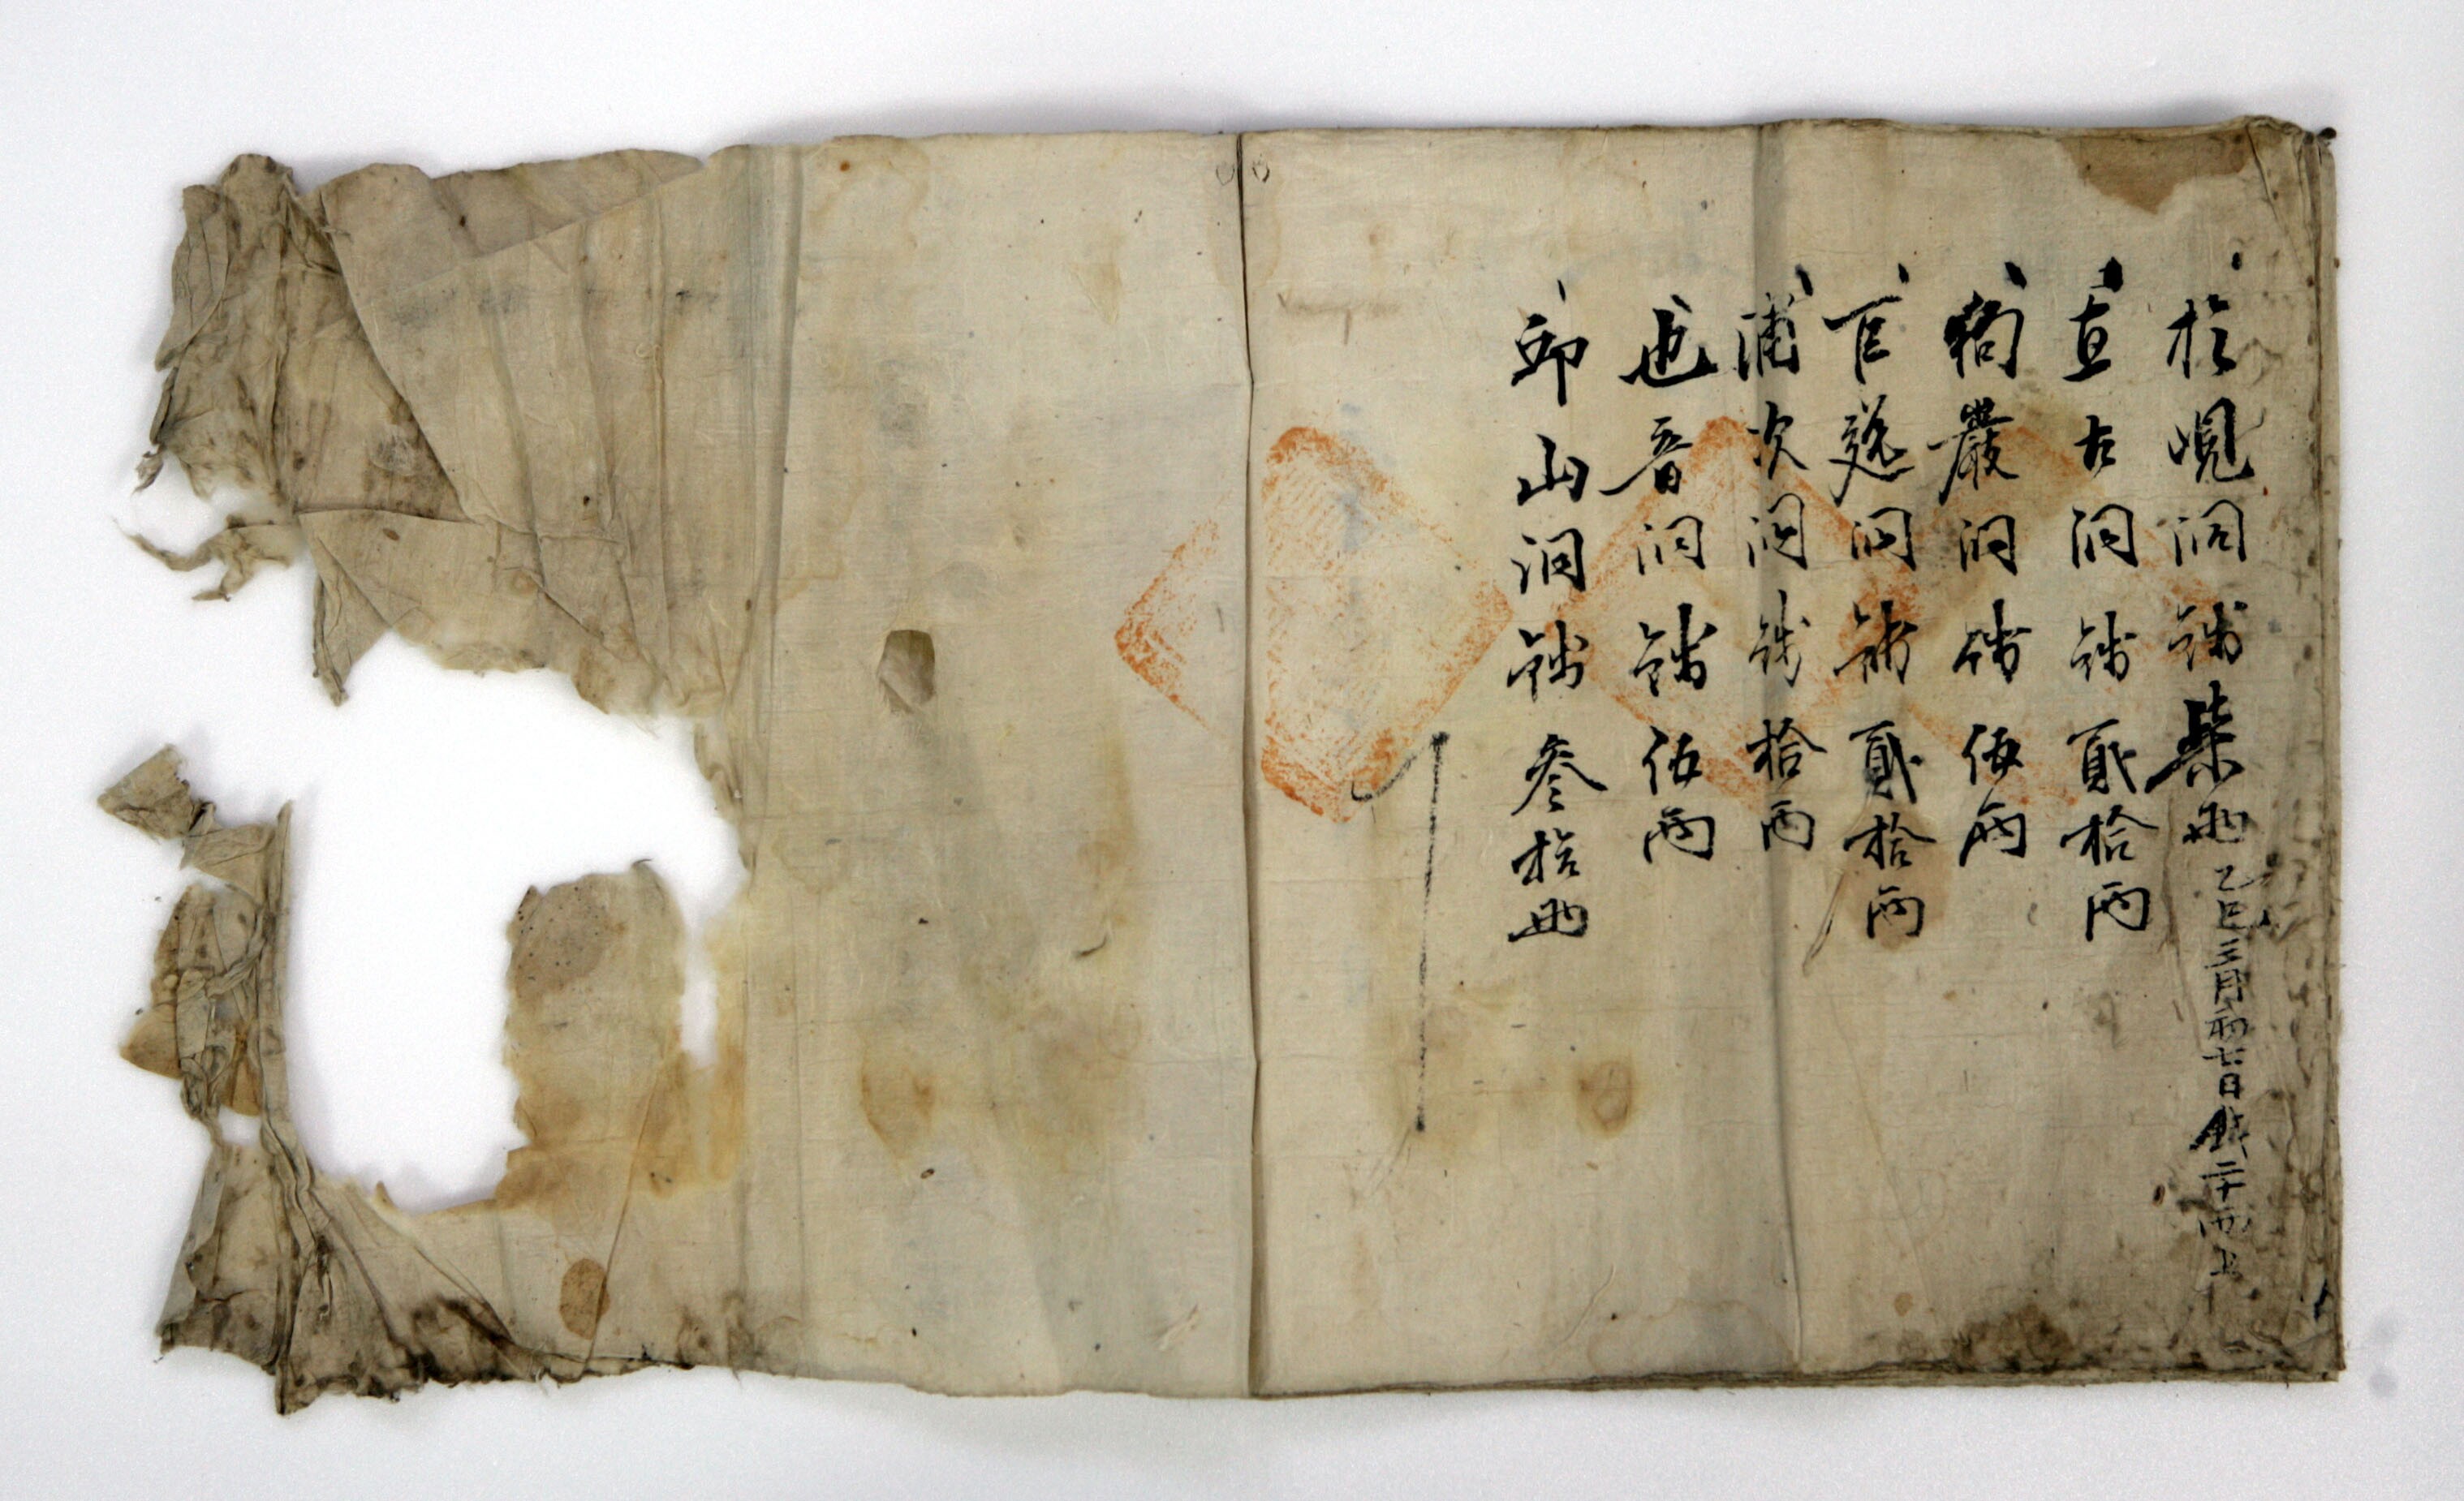 於峴洞錢柒兩 乙巳三月初七日錢二十兩上
直古洞錢貳拾兩
巖洞錢伍兩
官選洞錢貳拾兩
浦次洞錢拾兩
也音洞錢伍兩
卯山洞錢叄拾兩